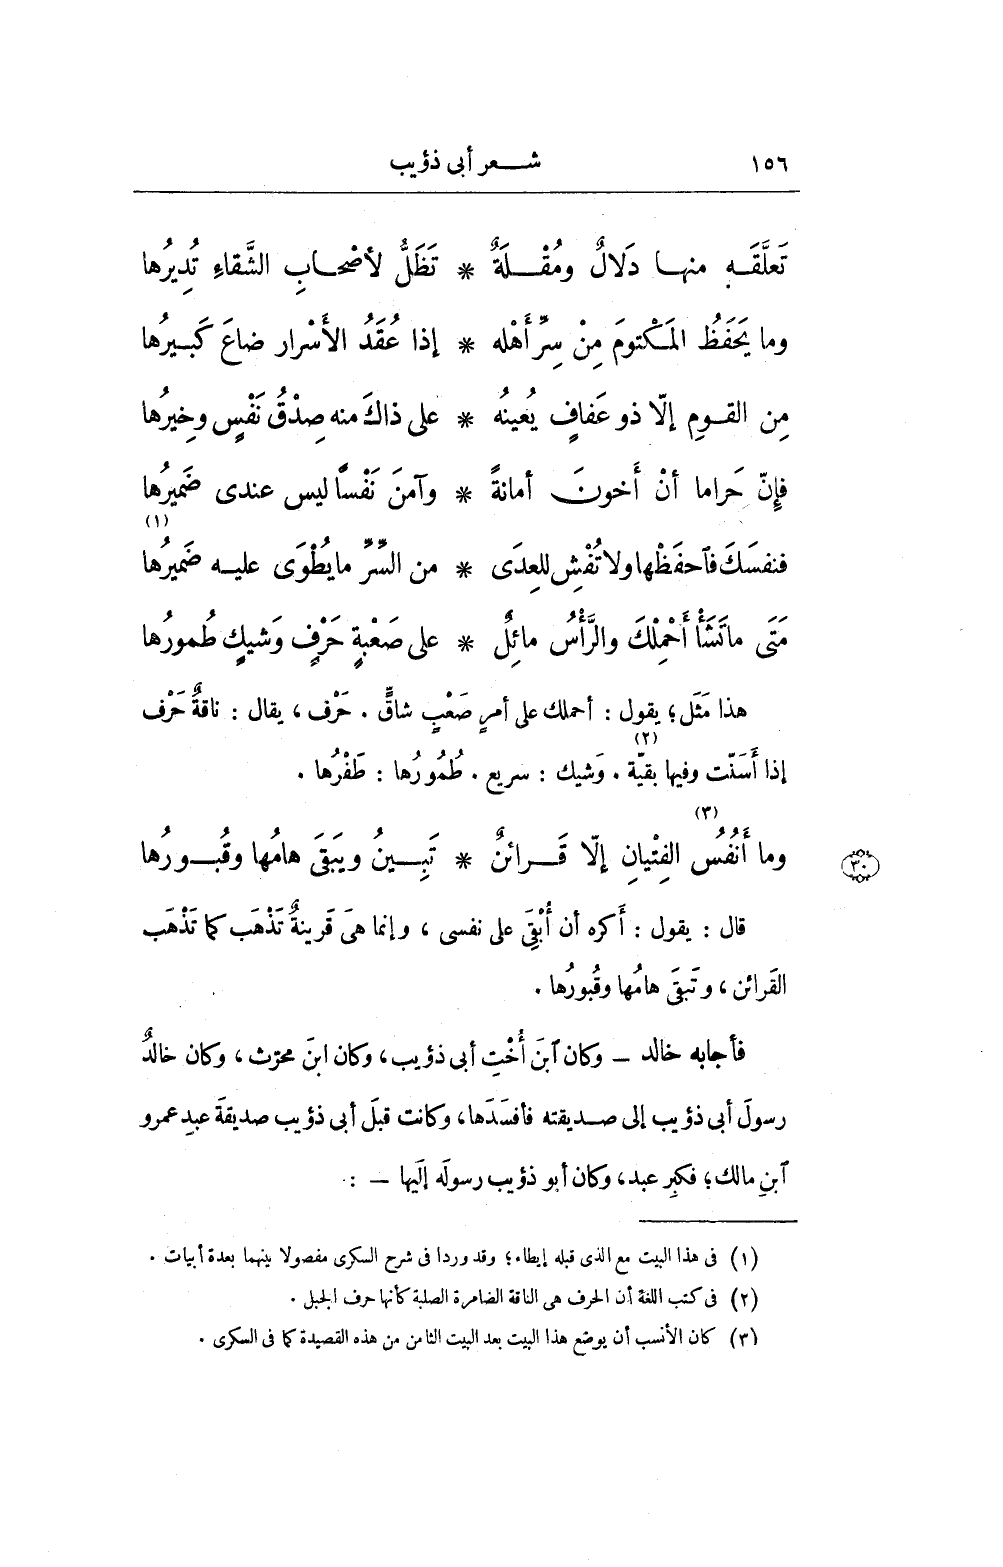 ١٥٦ شـعر أبى ذؤيب
تَعلَّقَـه منهـا دَلالٌ ومُقْـلَةٌ * تَظَلُّ لأصْحـابِ الشَّقاءِ تُدِيرُها
وما يَحَفَظُ المَكْتومَ مِنْ سِرِّ أَهْله * إذا عُقَدُ الأَسْرار ضاعَ كَبـيرُها
مِن القـومِ إلّا ذو عَفافٍ يُعينُه * على ذاكَ منه صِدْقُ نَفْسٍ وخِيرُها
فإِنّ حَراما أنْ أَخونَ أمانةً * وآمنَ نَفْساً ليس عندى ضَميرُها
(١)
فنفسَكَ فٱحفَظْها ولا تُفْشِ للعِدَى * من السِّرِّ مايُطْوَى عليـه ضَميرُها
مَتَى ماتَشَأْ أَحْمِلْكَ والرَّأْسُ مائِلٌ * على صَعْبةٍ حَرْفٍ وَشيكٍ طُمورُها
هذا مَثَل؛ يقول : أحملك على أمرٍ صَعْبٍ شاقٍّ . حَرْف، يقال : ناقةٌ حَرْف
(٢)
إذا أَسَنّت وفيها بقيّة . وَشيك : سريع . طُمُورُها : طَفْرُها .
(٣)
وما أَنْفُسُ الفِتْيانِ إلّا قَـرائنٌ * تَبِـينُ ويَبْقَى هامُها وقُبـورُها ٣٠
قال : يقول : أَكره أن أُبْقِىَ على نفسى ، وإنما هىَ قَرينةٌ تَذْهَب كما تَذْهَب
القَرائن، وتَبقَى هامُها وقُبورُها .
فأجابه خالد — وكان ٱبنَ أُخْتِ أبى ذؤيب، وكان ابنَ محرّث، وكان خالدٌ
رسولَ أبى ذؤيب إلى صـديقته فأفسَدَها، وكانت قبلَ أبى ذؤيب صديقةَ عبدِ عمرو
ٱبنِ مالك؛ فكبِر عبد، وكان أبو ذؤيب رسولَه إلَيها — :
(١) فى هذا البيت مع الذى قبله إيطاء؛ وقد وردا فى شرح السكرى مفصولا بينهما بعدة أبيات .
(٢) فى كتب اللغة أن الحرف هى الناقة الضامرة الصلبة كأنها حرف الجبل .
(٣) كان الأنسب أن يوضع هذا البيت بعد البيت الثامن من هذه القصيدة كما فى السكرى .